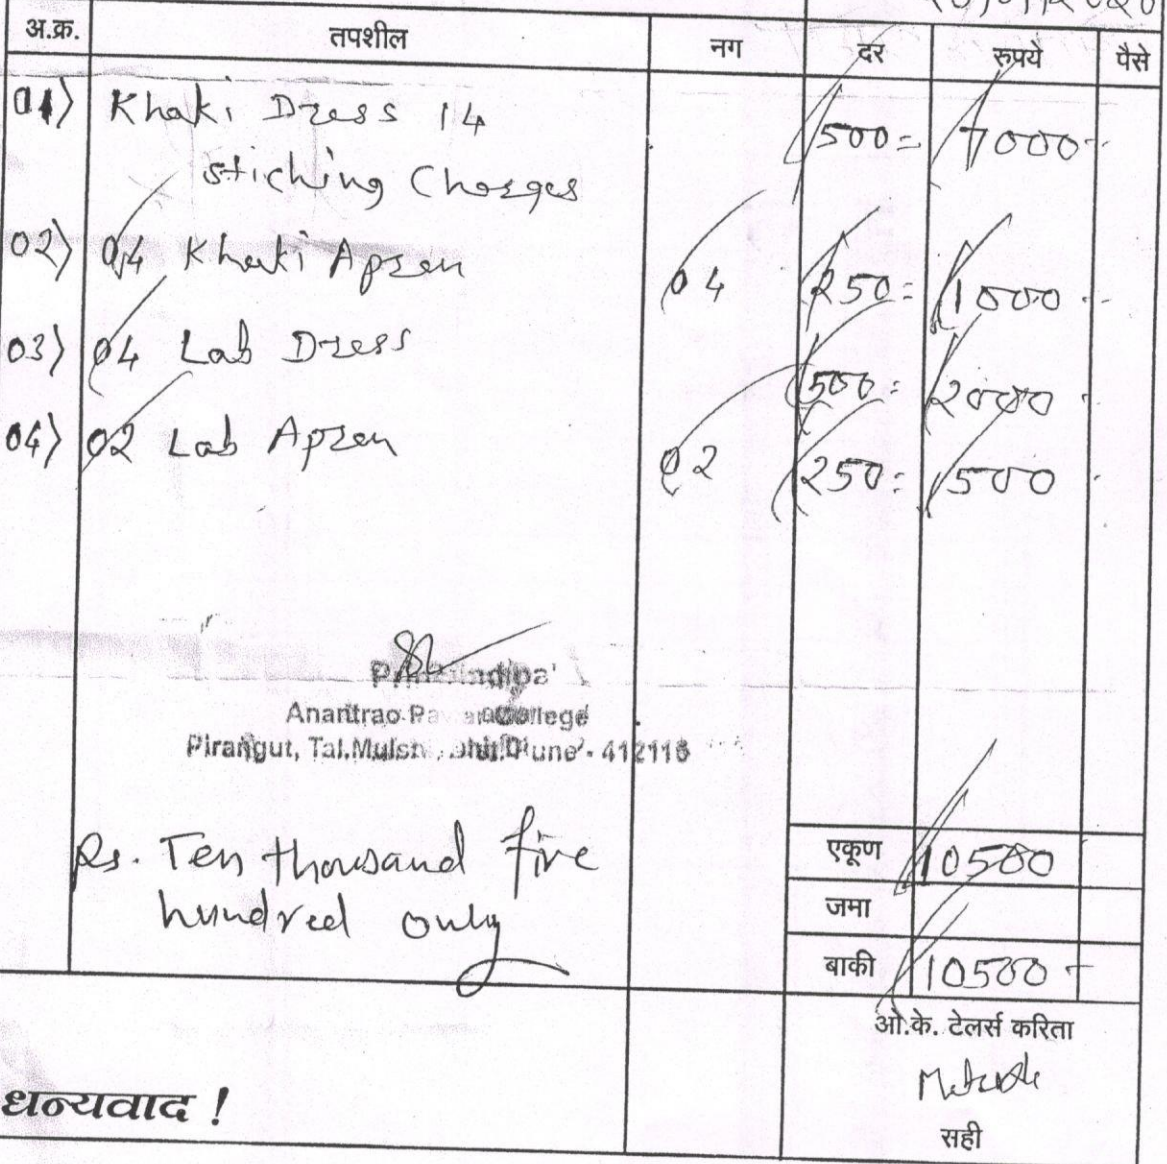 अ.क्र. तपशील नग दर रुपये पैसे
01) Khaki Dress 14 500= 7000-
stiching Charges
02) 04 Khaki Apren 04 250= 1000-
03) 04 Lab Dress 500= 2000-
04) 02 Lab Apren 02 250= 500-
Anantrao College
Pirangut, Tal.Mulshi, Pune - 412115
Rs. Ten thousand five
hundred only
एकूण 10500
जमा
बाकी 10500-
ओ.के. टेलर्स करिता
धन्यवाद !
सही